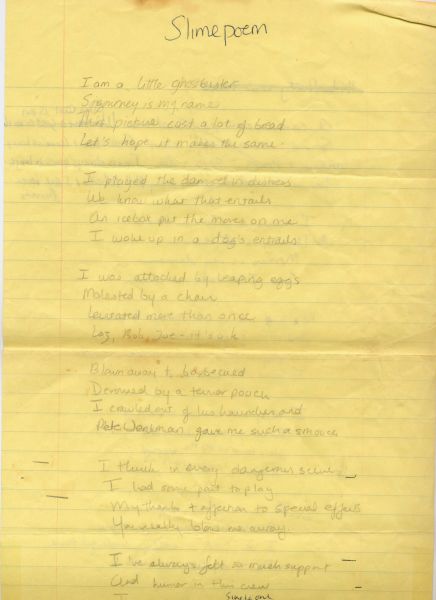 Slimepoem
I am a little ghostbuster
Sigourney is my name
This picture cost a lot of bread
Let's hope it makes the same.
I played the damsel in distress
We know what that entails
An icebox put the moves on me
I woke up in a dog's entrails
I was attacked by leaping eggs
Molested by a chair
Levitated more than once
Laz, Bob, Joe - it's o.k.
Blown away & barbecued
Devoured by a terror pooch
I crawled out of his haunches and
Pete Venkman gave me such a smooch
I think in every dangerous scene
I had some part to play
My thanks & affection to special effects
You really blow me away.
I've always felt so much support
And humor in this crew
someone